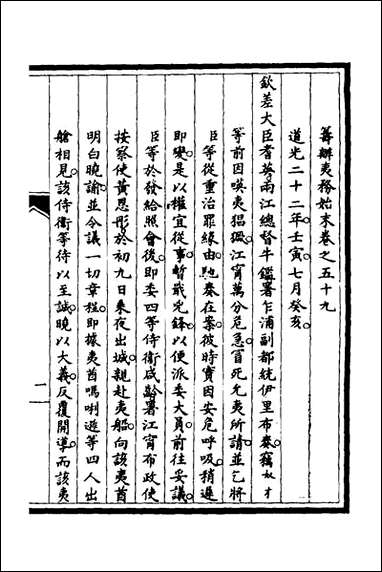 籌辦夷務始末卷之五十九
道光二十二年。壬寅。七月癸亥。
欽差大臣耆英兩江總督牛鑑署乍浦副都統伊里布奏竊奴才
等前因嘆夷猖獗。江甯萬分危急。冒死允夷所請。並乞將
臣等從重治罪緣由。馳奏在案。彼時實因安危呼吸。稍遲
即變。是以權宜從事。暫戢兇鋒。以便派委大員。前往妥議。
臣等於發給照會後。即委四等侍衛咸齡署江甯布政使
按察使黃恩彤於初九日乘夜出城。親赴夷艘。向該夷酋
明白曉諭。並令議一切章程。即據夷酋嗎唎遜等四人出
艙相見。該侍衛等待以至誠。曉以大義。反覆開導。而該夷
二